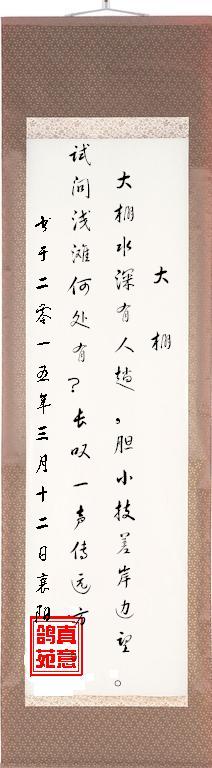 大棚
大棚水深有人趟，胆小技差岸边望。
试问浅滩何处有？长叹一声传远方
书于二零一五年三月十二日襄阳
真意
鸽苑